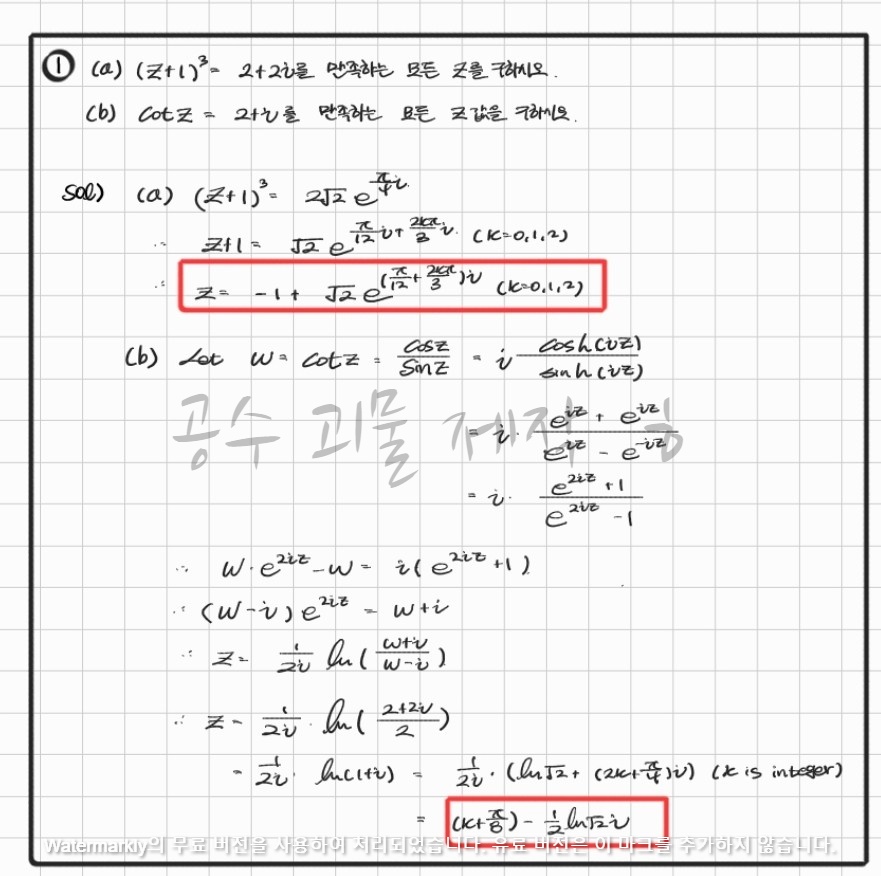 ① (a) (z+1)³ = 2+2i를 만족하는 모든 z를 구하시오.
(b) cot z = 2+i를 만족하는 모든 z값을 구하시오.
sol) (a) (z+1)³ = 2√2 e^{π/4 i}
∴ z+1 = √2 e^{π/12 i + 2kπ/3 i} (k=0,1,2)
∴ z = -1 + √2 e^{(π/12 + 2kπ/3)i} (k=0,1,2)
(b) Let w = cot z = cos z / sin z = i cosh(iz) / sinh(iz)
= i · (e^{iz} + e^{iz}) / (e^{iz} - e^{-iz})
= i · (e^{2iz} + 1) / (e^{2iz} - 1)
공수 괴물 제작
∴ w·e^{2iz} - w = i(e^{2iz} + 1)
∴ (w-i)e^{2iz} = w+i
∴ z = 1/2i ln((w+i)/(w-i))
∴ z = 1/2i · ln((2+2i)/2)
= 1/2i · ln(1+i) = 1/2i · (ln√2 + (2k+π/4)i) (k is integer)
= (k+π/8) - 1/2 ln√2 i
Watermarkly의 무료 버전을 사용하여 처리되었습니다. 유료 버전은 이 마크를 추가하지 않습니다.